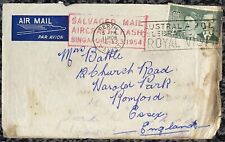 AIR MAIL
PAR AVION
SALVAGED MAIL
AIRCRAFT CRASH
SINGAPORE 13.3.1954
PERTH
AUSTRALIA
ROYAL VISIT
Mrs Battle
18 Church Road
Harold Park
Romford
Essex
England